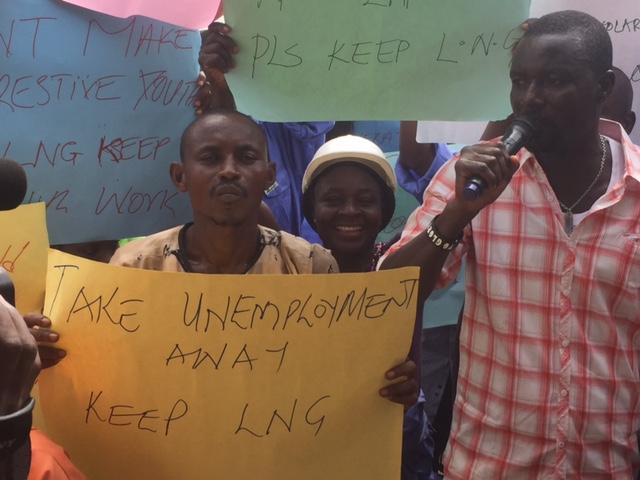 NT MAKE
RESTIVE YOUTH
LNG KEEP
UR WORK
PLS KEEP L.N.G
TAKE UNEMPLOYMENT
AWAY
KEEP LNG